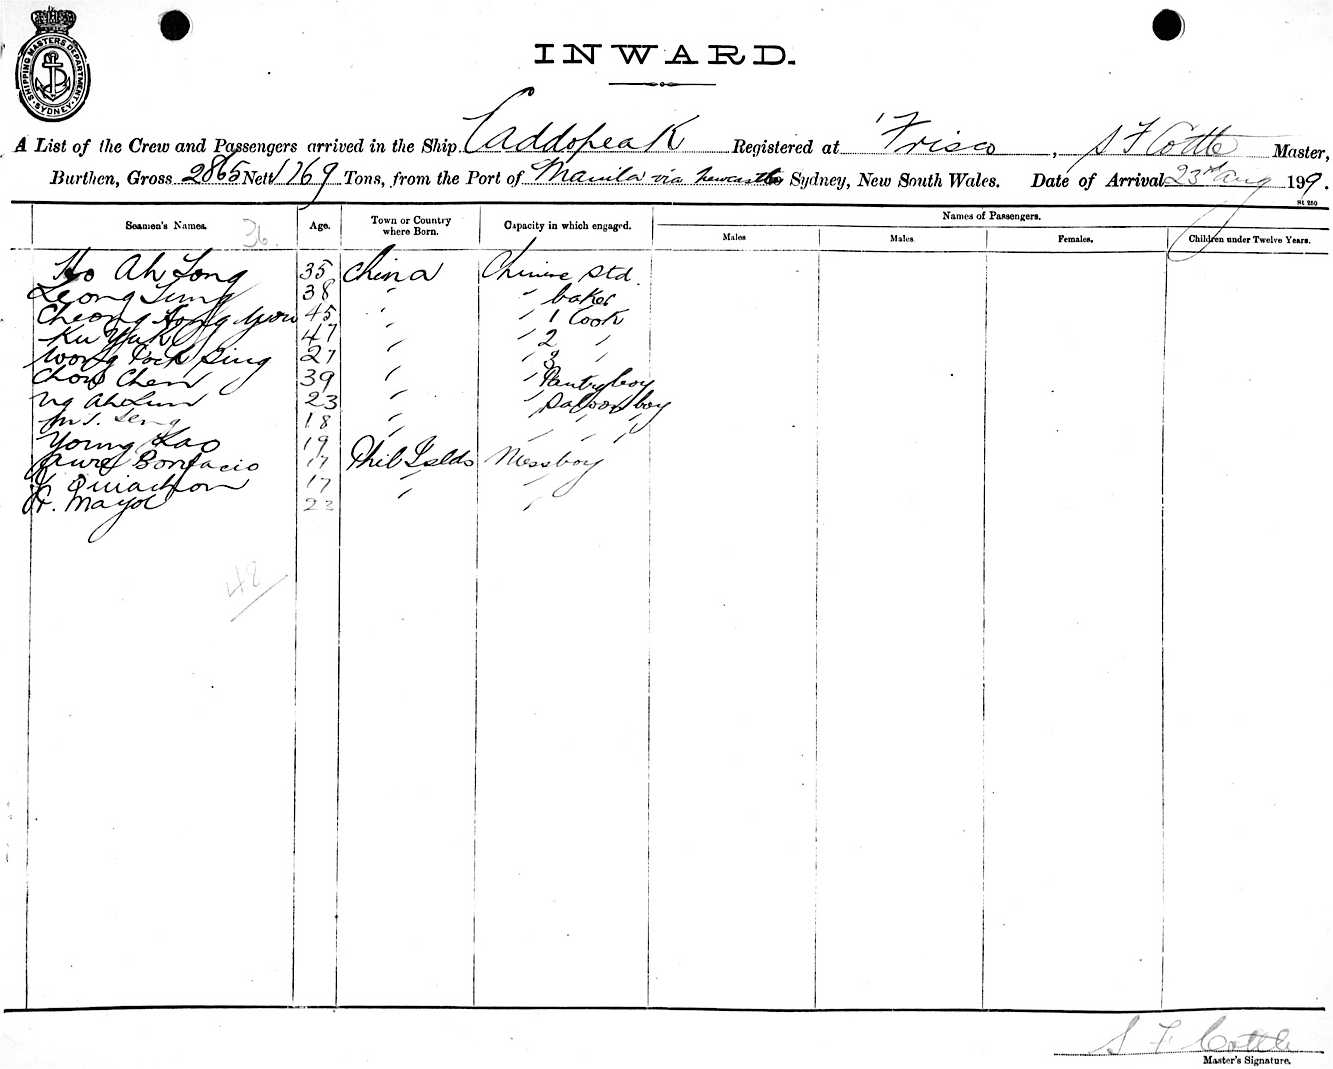 SHIPPING MASTERS DEPARTMENT
SYDNEY
INWARD.
A List of the Crew and Passengers arrived in the Ship Caddopeak Registered at 'Frisco, S F Cottle Master,
Burthen, Gross 2865 Nett 1769 Tons, from the Port of Manila via Newcastle Sydney, New South Wales. Date of Arrival 23rd Aug 199.
St 250
Seamen's Names. 36. Age. Town or Country where Born. Capacity in which engaged. Names of Passengers.
Males Males Females. Children under Twelve Years.
Ho Ah Tong 35 China Chinese Std.
Leong Tung 38 " " baker
Cheong Hong 45 " " 1 Cook
Ku Yuk 47 " " 2 "
Wong Pock Sing 27 " " 3 "
Chow Chen 39 " " Pantry boy
Ng Ah Lun 23 " " Saloon boy
Seng 18 " " " "
Young Kao 19 " " " "
Bonifacio 17 Phil Islds Messboy
Quiachon 17 " "
Mayol 22 " "
48
S F Cottle
Master's Signature.